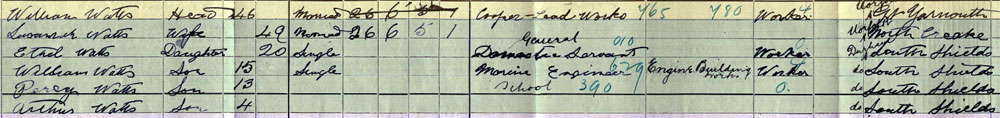 William Watts Head 46 Married 26 6 5 1 Cooper - Lead Works 465 480 Worker Yarmouth
Susannah Watts Wife 49 Married 26 6 5 1 North Creake
Ethel Watts Daughter 20 Single General Domestic Servant 010 Worker do South Shields
William Watts Son 15 Single Marine Engineer 629 Engine Building Works Worker do South Shields
Percy Watts Son 13 School 390 0. do South Shields
Arthur Watts Son 4 do South Shields